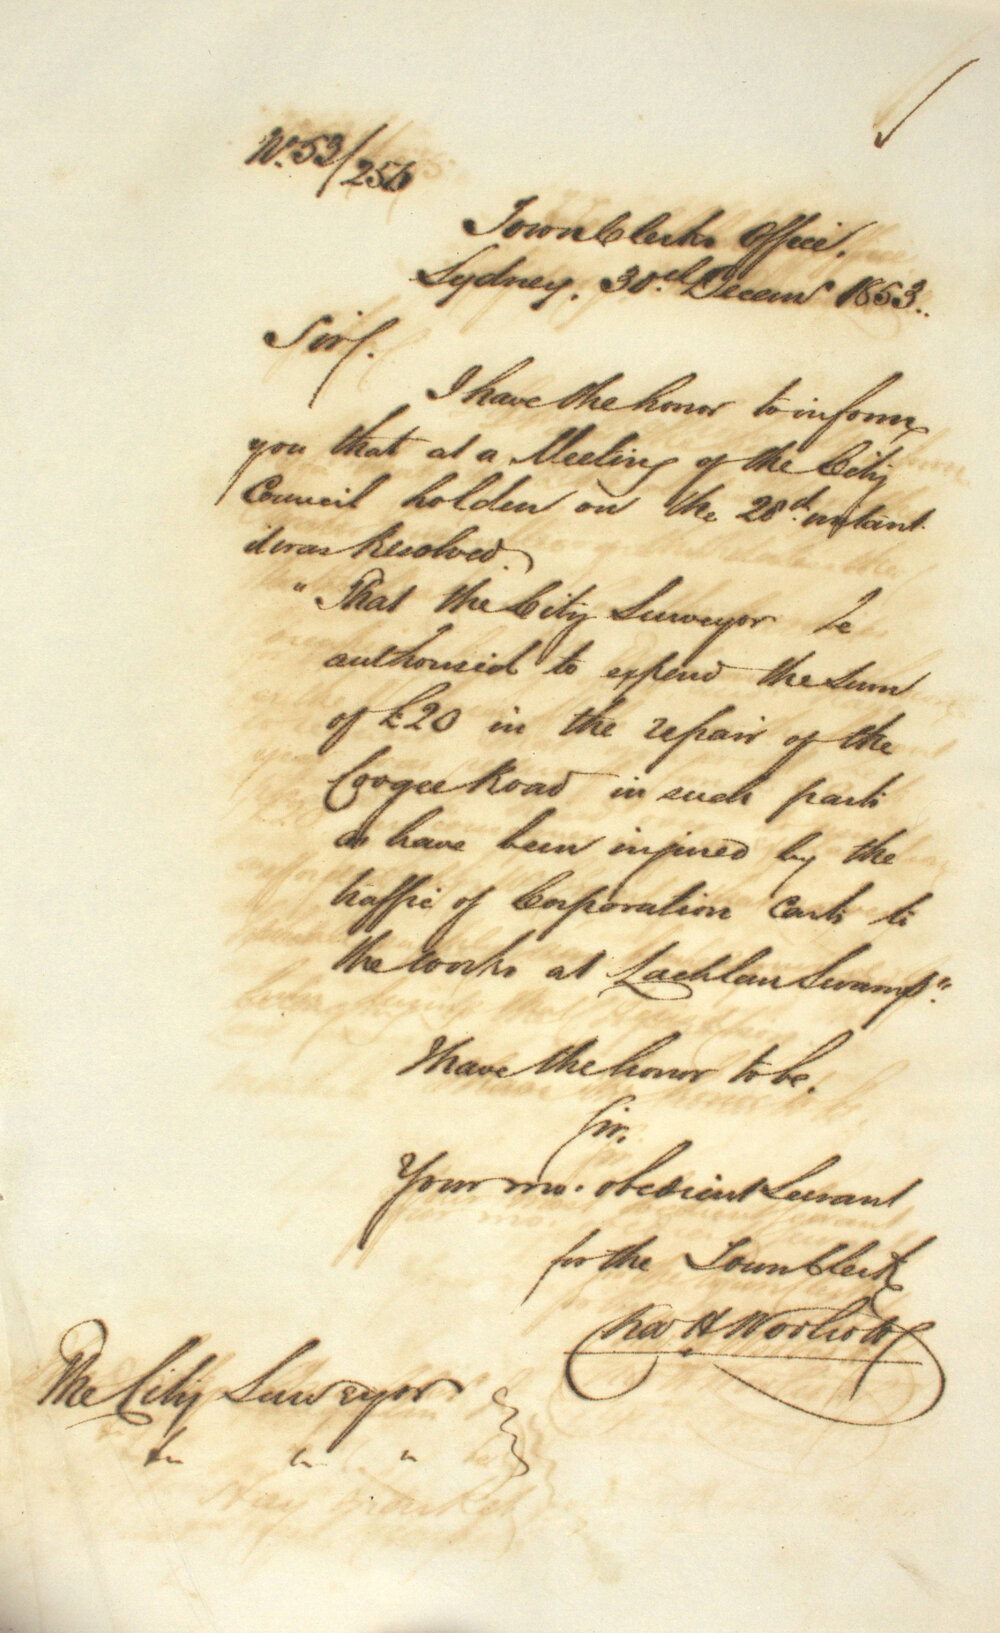 No. 53/256
Town Clerks Office.
Sydney. 30th Decemr 1853.
Sir,
I have the honor to inform
you that at a Meeting of the City
Council holden on the 28th instant
it was Resolved.
"That the City Surveyor be
authorised to expend the sum
of £20 in the repair of the
Coogee Road in such parts
as have been injured by the
traffic of Corporation Carts to
the works at Lachlan Swamp".
I have the honor to be,
Sir,
Your mo. obedient Servant
for the Town Clerk
Chas H Woolcott
The City Surveyor